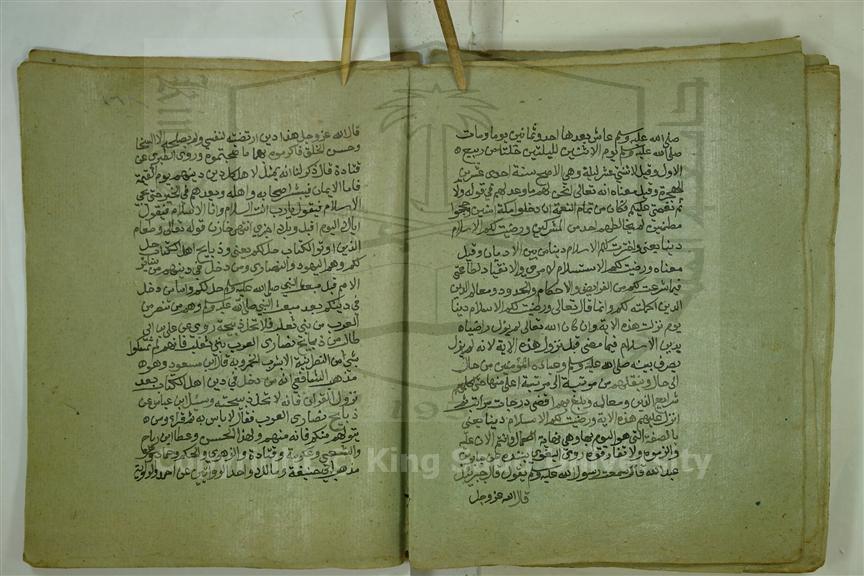 صلى الله عليه وسلم عاش بعدها احد وثمانين يوما ومات
صلى الله عليه وسلم يوم الاثنين لليلتين خلتا من ربيع
الاول وقيل لاثنتي عشر ليلة وهي الاصح سنة احدى عشر من
الهجرة وقيل معناه انه تعالى انجز لهم ما وعدهم في قوله ولا
تم نعمتي عليكم فكان من تمام النعمة ان دخلوا مكة امنين وحجوا
مطمئنين لم يخالطهم احد من المشركين ورضيت لكم الاسلام
دينا يعني واخترت لكم الاسلام دينا من بين الاديان وقيل
معناه ورضيت لكم الاستسلام لامري والانقياد لطاعتي
فيما شرعت لكم من الفرايض والاحكام والحدود ومعالم الدين
الذين اكملته لكم وانما قال تعالى ورضيت لكم الاسلام دينا
يوم نزلت هذه الاية وان كان الله تعالى لم يزل راضيا
بدين الاسلام فيما مضى قبل نزول هذه الاية لانه لم يزل
يصرف نبيه صلى الله عليه وسلم وعباده المؤمنين من حال
الى حال وينقلهم من مرتبة الى مرتبة اعلى منها حتى اكمل لهم
شرايع الدين ومعالمه وبلغ بهم اقصى درجات مراتبه ثم
انزل عليهم هذه الاية ورضيت لكم الاسلام دينا يعني
بالصفة التي هو اليوم بها وهي نهاية الكمال وانتم الان عليه
والزموه ولا تفارقوه روى البغوي بسنده عن جابر بن
عبد الله قال سمعت رسول الله عليه وسلم يقول قال جبريل
قال الله عز وجل
قال الله عز وجل هذا دين ارتضيته لنفسي ولن يصلحه الا السخا
وحسن الخلق فاكرموه بهما ما صحبتموه وروى الطبري عن
قتادة قال ذكر لنا انه يمثل لاهل كل دين دينهم يوم القيمة
فاما الايمان فيبشر اصحابه واهله ويعدهم في الخير حتى يجي
الاسلام فيقول يا رب انت السلام وانا الاسلام فيقول
اياك اليوم اقبل وبك اجزي انتهى خازن قوله تعالى وطعام
الذين اوتوا الكتاب حل لكم يعني وذبايح اهل الكتاب حل
لكم وهم اليهود والنصارى ومن دخل في دينهم من ساير
الامم قبل مبعث النبي صلى الله عليه وسلم حل لكم فاما من دخل
في دينهم بعد مبعث النبي صلى الله عليه وسلم وهم من تنصر من
العرب من بني تغلب فلا تحل ذبيحته روى عن علي بن ابي
طالب من ذبايح نصارى العرب بني تغلب فانهم لم يتمسكوا
بشي من النصرانية الا بشرب الخمر وبه قال ابن مسعود وهو
مذهب الشافعي انه من دخل في دين اهل الكتاب بعد
نزول القران فانه لا تحل ذبيحته وسئل ابن عباس عن
ذبايح نصارى العرب فقال لا باس به ثم قرا ومن
يتولهم منكم فانه منهم وهذا الحسن وعطا بن ابي رباح
والشعبي وعكرمة وقتادة والزهري والحكم وحماد وهو
مذهب ابي حنيفة ومالك واحد الروايتين عن احمد والرواية
Copyright © King Saud University